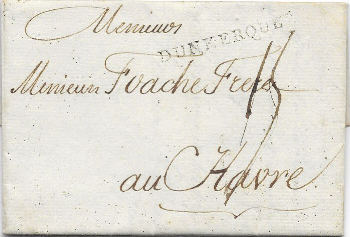 Messieurs
DUNKERQUE
Messieurs Foache Freres
au Havre